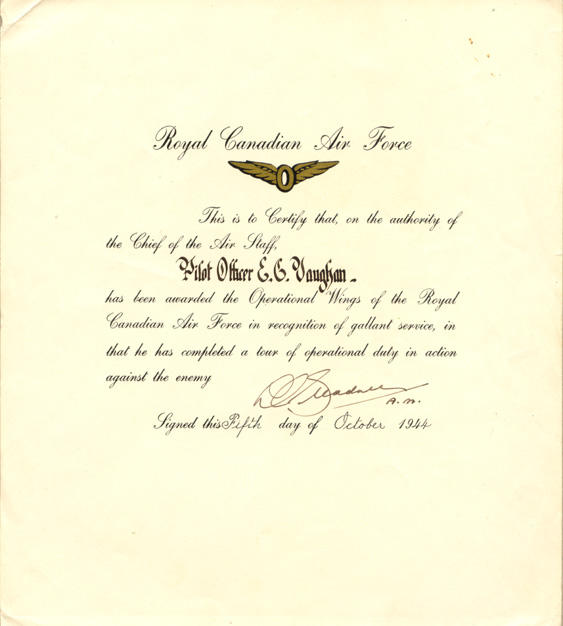 Royal Canadian Air Force
O
This is to Certify that, on the authority of
the Chief of the Air Staff,
Pilot Officer E. G. Vaughan
has been awarded the Operational Wings of the Royal
Canadian Air Force in recognition of gallant service, in
that he has completed a tour of operational duty in action
against the enemy
A.M.
Signed this Fifth day of October 1944